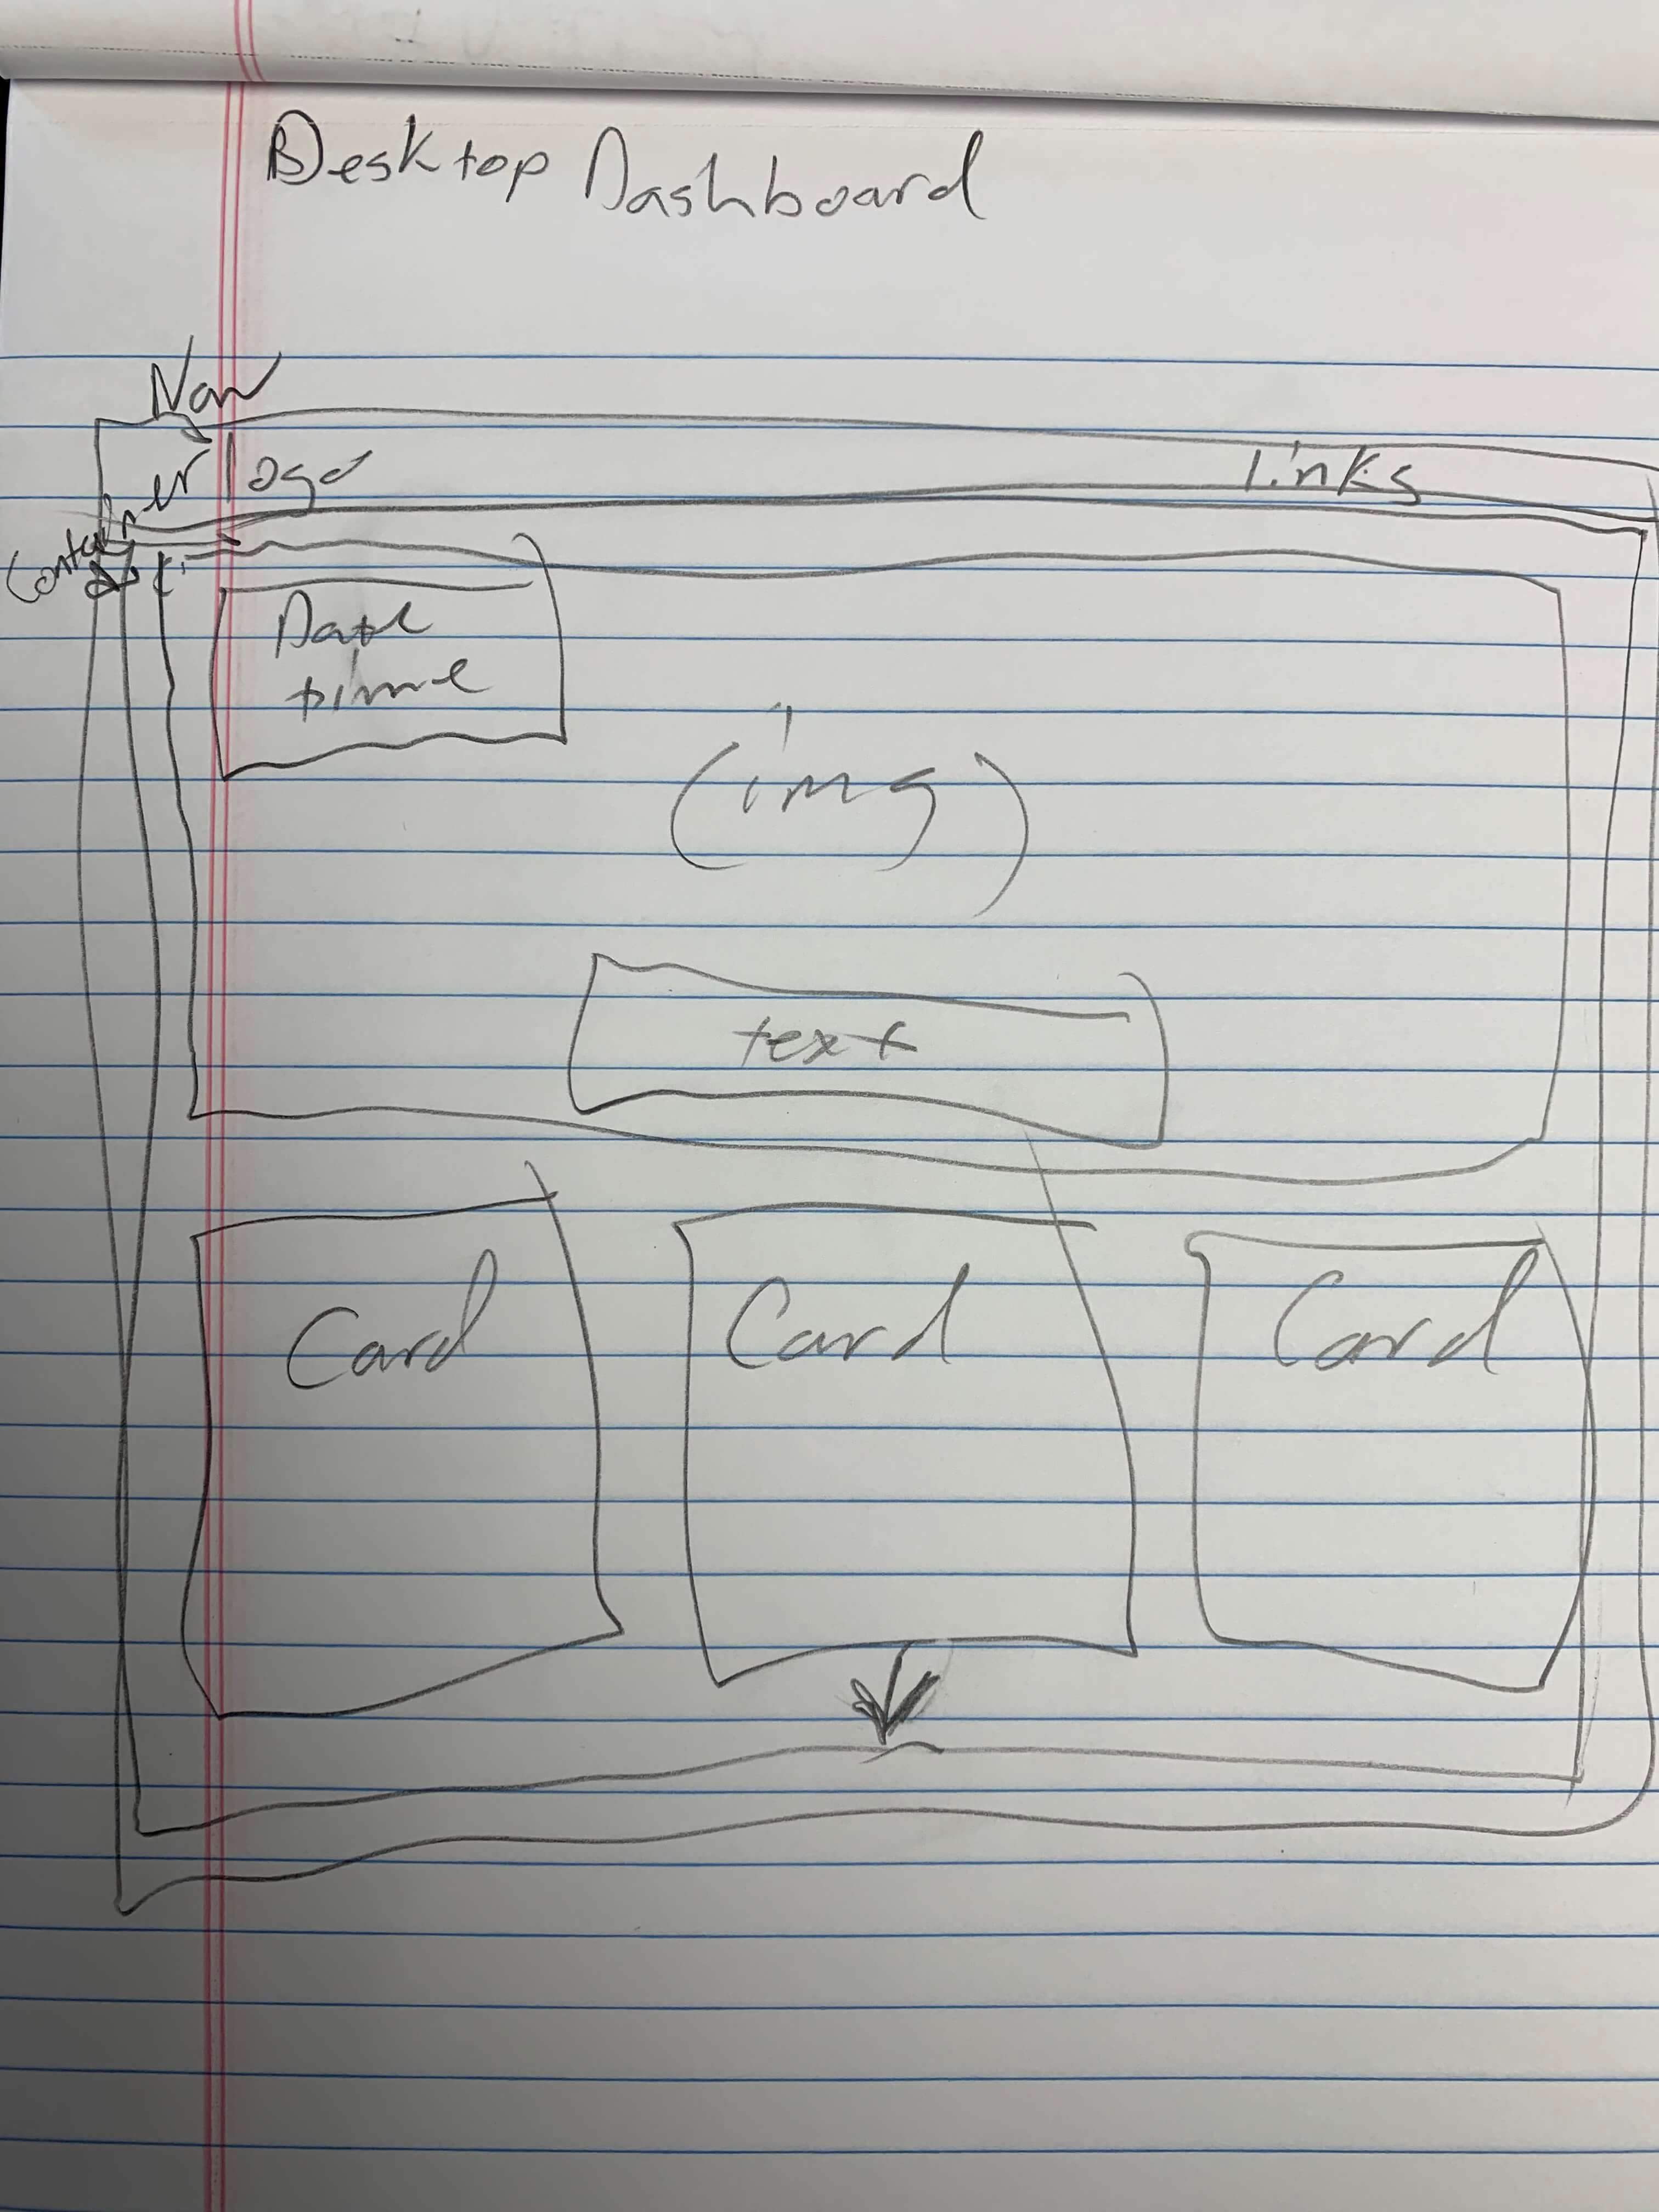 Desktop Dashboard
Nav
Container
logo
links
Date
time
(img)
text
Card
Card
Card